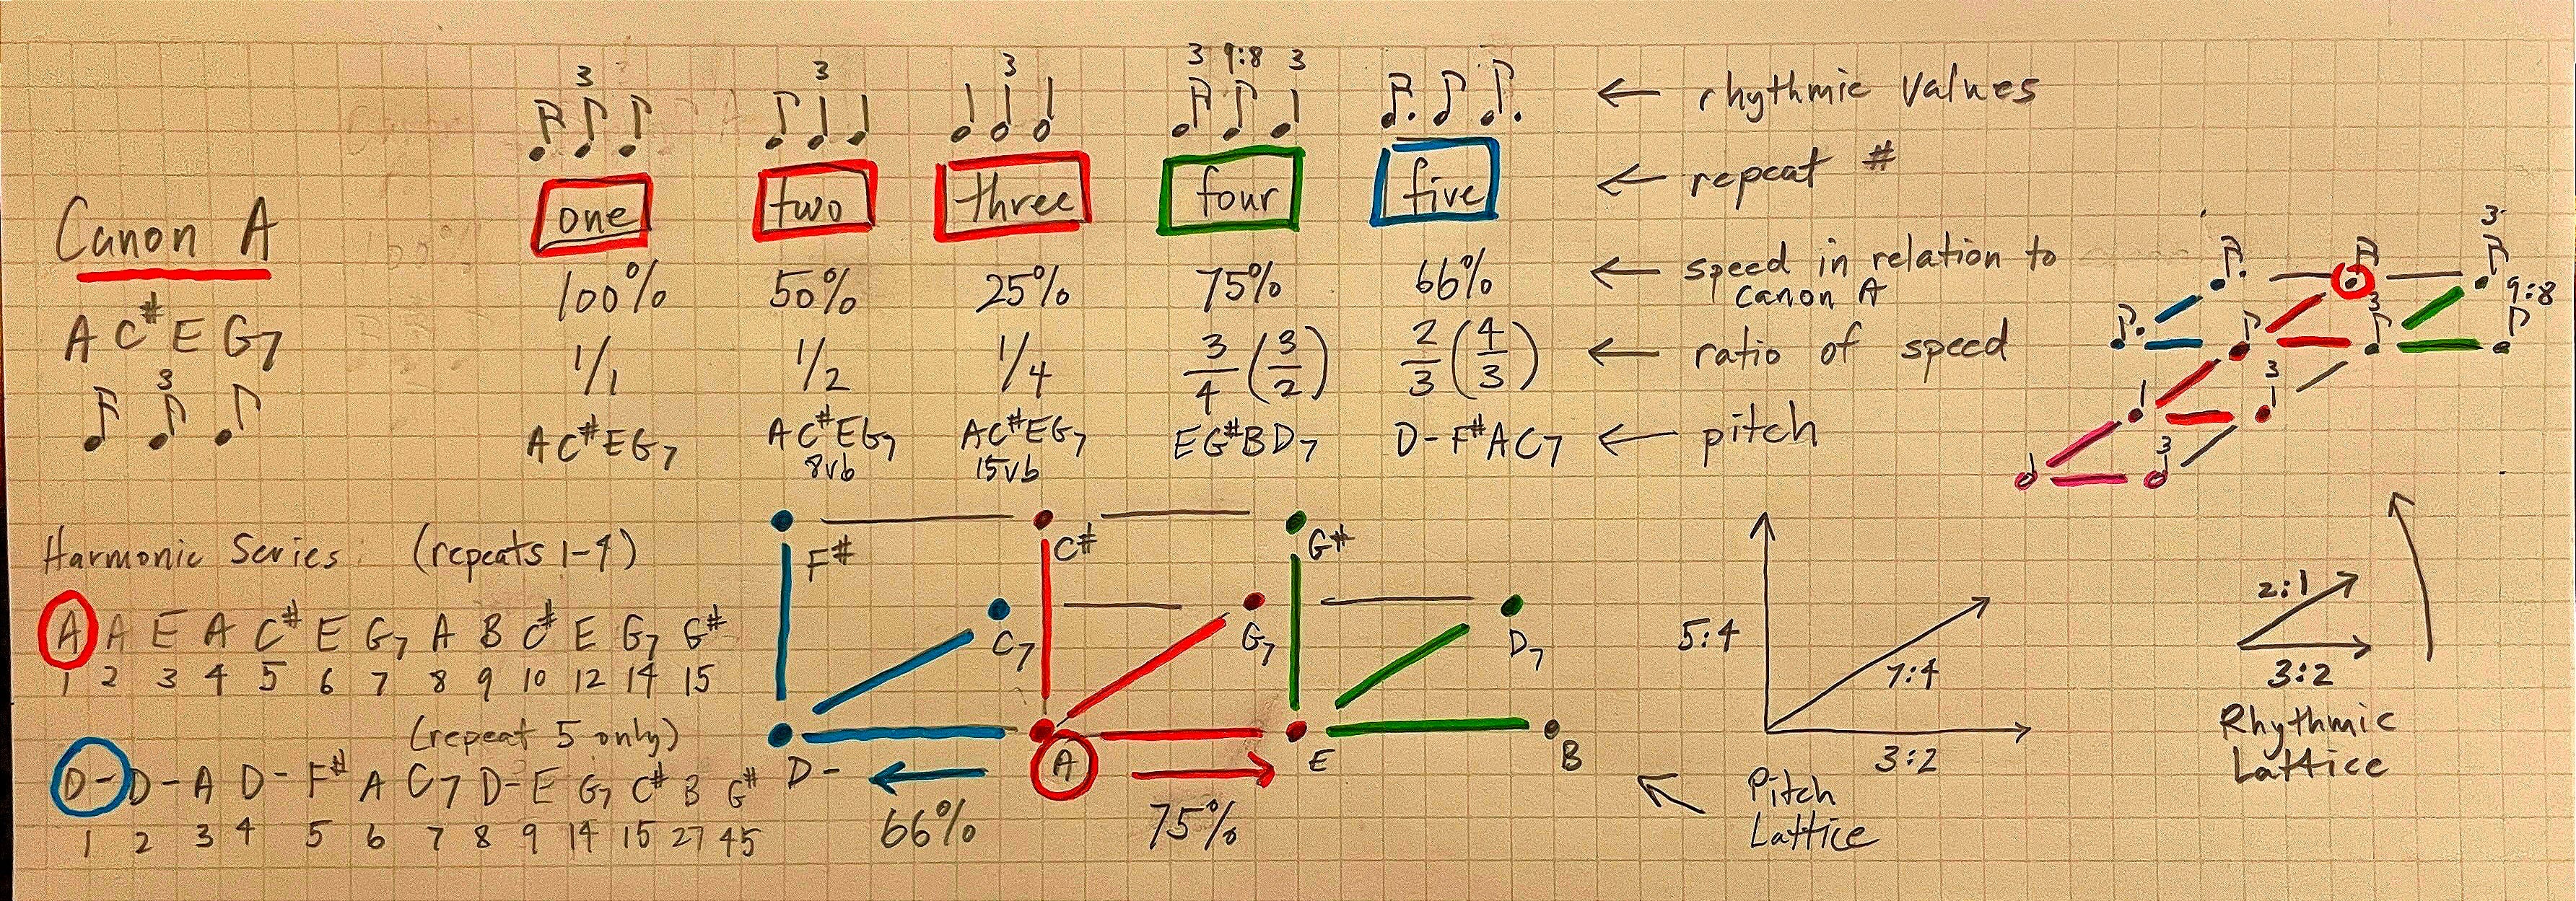 3 3 3 3 9:8 3
← rhythmic values
one two three four five ← repeat #
Canon A
100% 50% 25% 75% 66% ← speed in relation to
canon A
A C# E G7
1/1 1/2 1/4 3/4 (3/2) 2/3 (4/3) ← ratio of speed
3
A C# E G7 A C# E G7 A C# E G7 E G# B D7 D- F# A C7 ← pitch
8vb 15vb
3
9:8
3
3
3
Harmonic Series: (repeats 1-4)
A A E A C# E G7 A B C# E G7 G#
1 2 3 4 5 6 7 8 9 10 12 14 15
(repeat 5 only)
D- D- A D- F# A C7 D- E G7 C# B G#
1 2 3 4 5 6 7 8 9 14 15 27 45
F# C# G#
C7 G7 D7
D- A E B
66% 75%
5:4
7:4
3:2
Pitch
Lattice
2:1
3:2
Rhythmic
Lattice